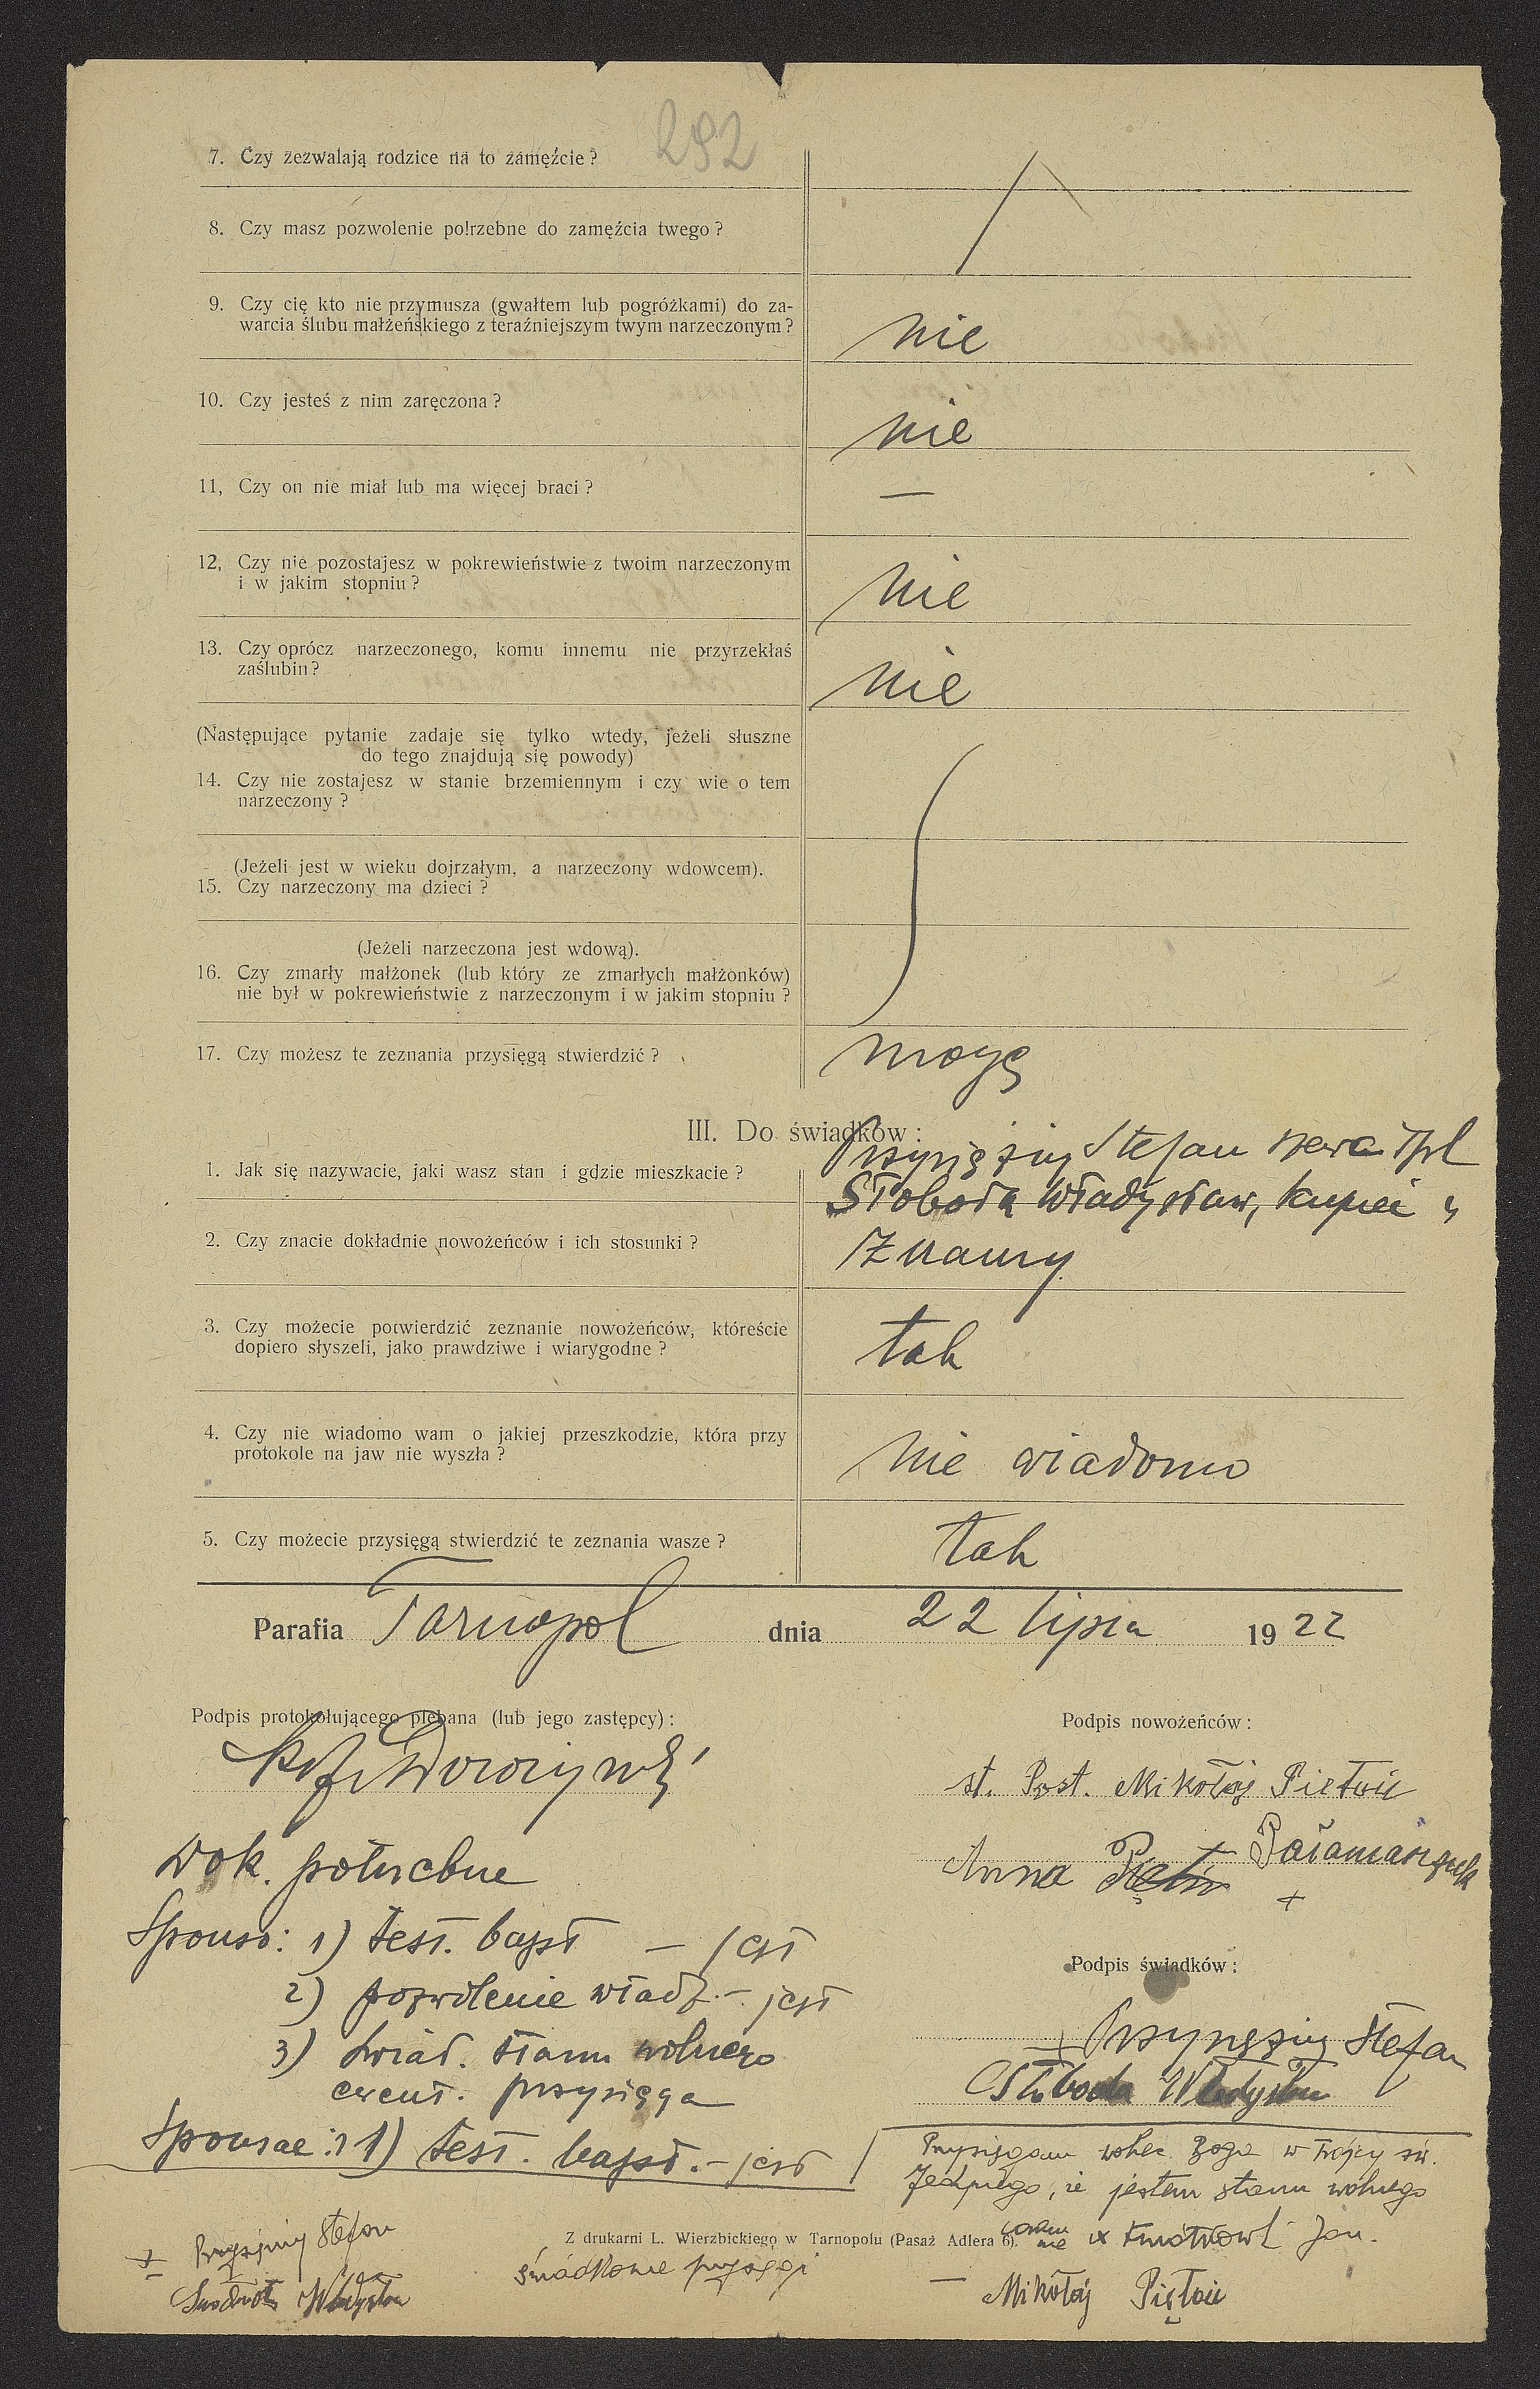 292
7. Czy zezwalają rodzice na to zamęźcie?
8. Czy masz pozwolenie potrzebne do zamęźcia twego?
9. Czy cię kto nie przymusza (gwałtem lub pogróżkami) do za-
warcia ślubu małżeńskiego z teraźniejszym twym narzeczonym?
nie
10. Czy jesteś z nim zaręczona?
nie
11, Czy on nie miał lub ma więcej braci?
—
12, Czy nie pozostajesz w pokrewieństwie z twoim narzeczonym
i w jakim stopniu?
nie
13. Czy oprócz narzeczonego, komu innemu nie przyrzekłaś
zaślubin?
nie
(Następujące pytanie zadaje się tylko wtedy, jeżeli słuszne
do tego znajdują się powody)
14. Czy nie zostajesz w stanie brzemiennym i czy wie o tem
narzeczony?
(Jeżeli jest w wieku dojrzałym, a narzeczony wdowcem).
15. Czy narzeczony ma dzieci?
(Jeżeli narzeczona jest wdową).
16. Czy zmarły małżonek (lub który ze zmarłych małżonków)
nie był w pokrewieństwie z narzeczonym i w jakim stopniu?
17. Czy możesz te zeznania przysięgą stwierdzić?
mogę
III. Do świadków:
1. Jak się nazywacie, jaki wasz stan i gdzie mieszkacie?
Przysiężny Stefan Tpl
Słoboda Władysław, kupiec "
2. Czy znacie dokładnie nowożeńców i ich stosunki?
Znamy
3. Czy możecie potwierdzić zeznanie nowożeńców, któreście
dopiero słyszeli, jako prawdziwe i wiarygodne?
tak
4. Czy nie wiadomo wam o jakiej przeszkodzie, która przy
protokole na jaw nie wyszła?
nie wiadomo
5. Czy możecie przysięgą stwierdzić te zeznania wasze?
tak
Parafia Tarnopol dnia 22 lipca 1922
Podpis protokołującego plebana (lub jego zastępcy):
Podpis nowożeńców:
st. Post. Mikołaj Piętoń
Anna Pałamarczuk
+
Dok. potrzebne
Sponso: 1) test. bapt — jest
2) pozwolenie władz. — jest
3) świad. stanu wolnego
ewent. przysięga
Sponsae: 1) test. bapt. — jest
Podpis świadków:
+ Przysiężny Stefan
Słoboda Władysław
Przysięgam wobec Boga w Trójcy św.
Jedynego, że jestem stanu wolnego
Z drukarni L. Wierzbickiego w Tarnopolu (Pasaż Adlera 6).
świadkowie przysięgi
— Mikołaj Piętoń
+ Przysiężny Stefan
Słoboda Władysław